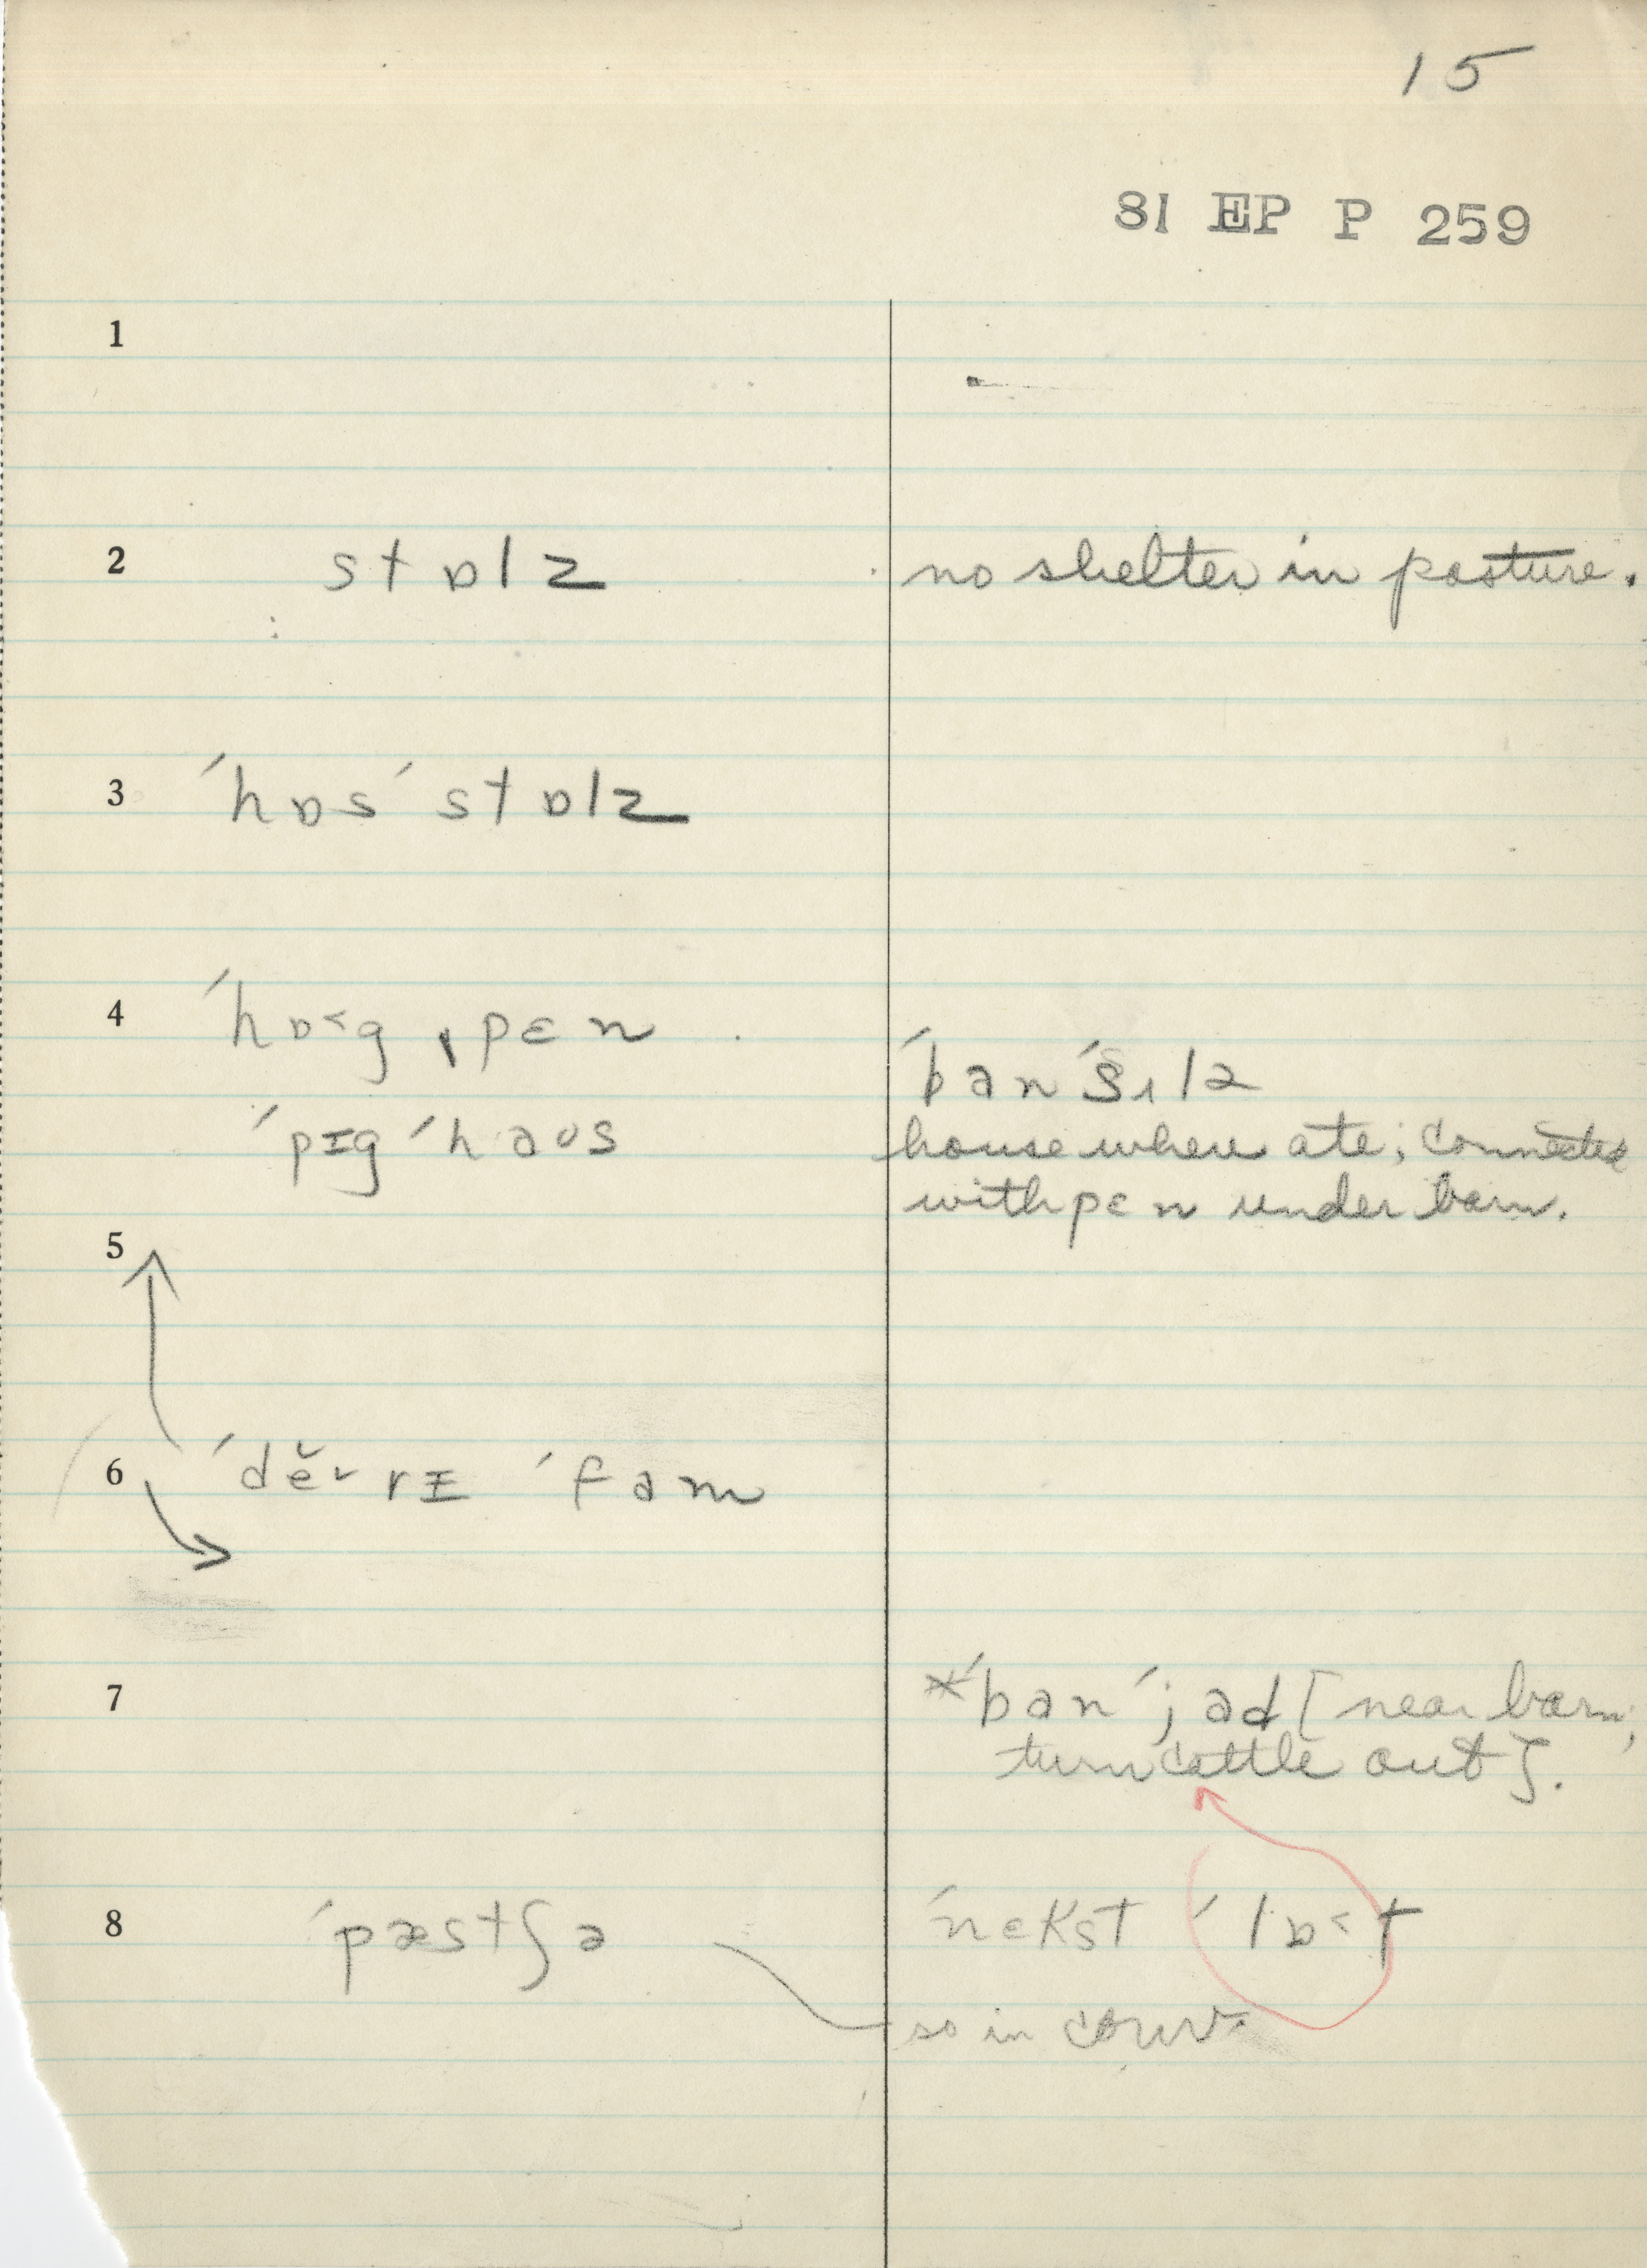 15
81 EP P 259
1
2 stɒlz no shelter in pasture.
3 ´hɒs´stɒlz
4 ´hɒ˂g ˌpɛn
´ban´sɪlə
´pɪg´haʊs house where ate; connected
with pɛn under barn.
5
6 ´dĕ˅rɪ ´fam
7 *´ban´jad [near barn;
turn cattle out].
8 ´pæstʃə ´nɛkst ´lɒ˂t
so in conv.